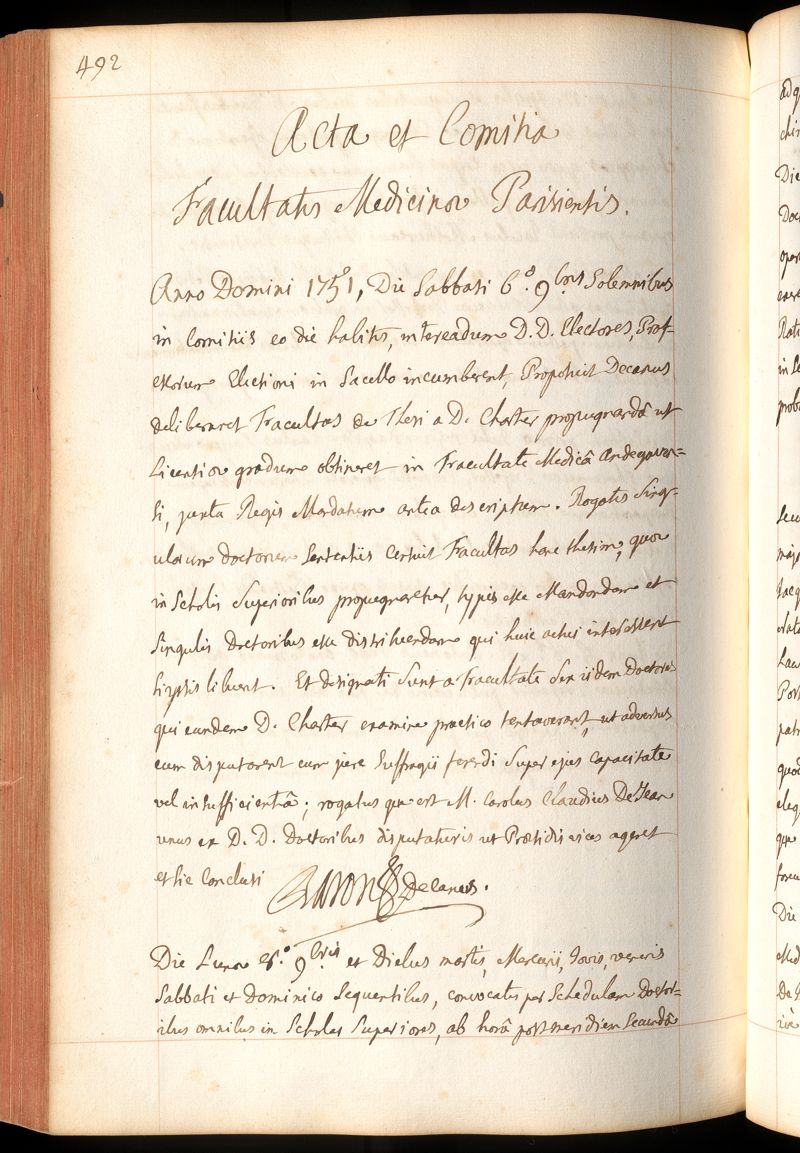 492
Acta et Comitia
Facultatis Medicinæ Parisiensis.
Anno Domini 1751, Die Sabbati 6.° 9bris Solemnibus
in Comitiis eo die habitis, intereadum D.D. Electores, Prof-
essorum Electioni in Sacello incumberent, Proposuit Decanus
deliberaret Facultas de Thesi a D. Charter propugnandâ ut
Licentiæ gradum obtineret in Facultate Medicâ Andegaven-
si, juxta Regis Mandatum antea descriptum. Rogatis Sing-
ulorum doctorum Sententiis Censuit Facultas hanc thesim, quæ
in Scholis Superioribus propugnaretur, typis esse Mandandam et
Singulis Doctoribus esse distribuendam qui huic actui interessent
si ipsis liberet. Et designati Sunt a Facultate Sex iidem Doctores
qui eundem D. Charter examine practico tentaverant, ut adversus
eum disputarent cum jure Suffragii ferendi Super ejus capacitate
vel insufficientiâ; rogatus que est M. Carolus Claudius De Jean
unus ex D.D. Doctoribus disputaturis ut Præsidis vices ageret
et sic Conclusi Baron Decanus.
Die Lunæ 8.° 9bris et Diebus martis, Mercurii, Jovis, veneris
Sabbati et dominico Sequentibus, convocatis per Schedulam Doctor=
ibus omnibus in Scholas Superiores, ab horâ postmeridiem Secundâ